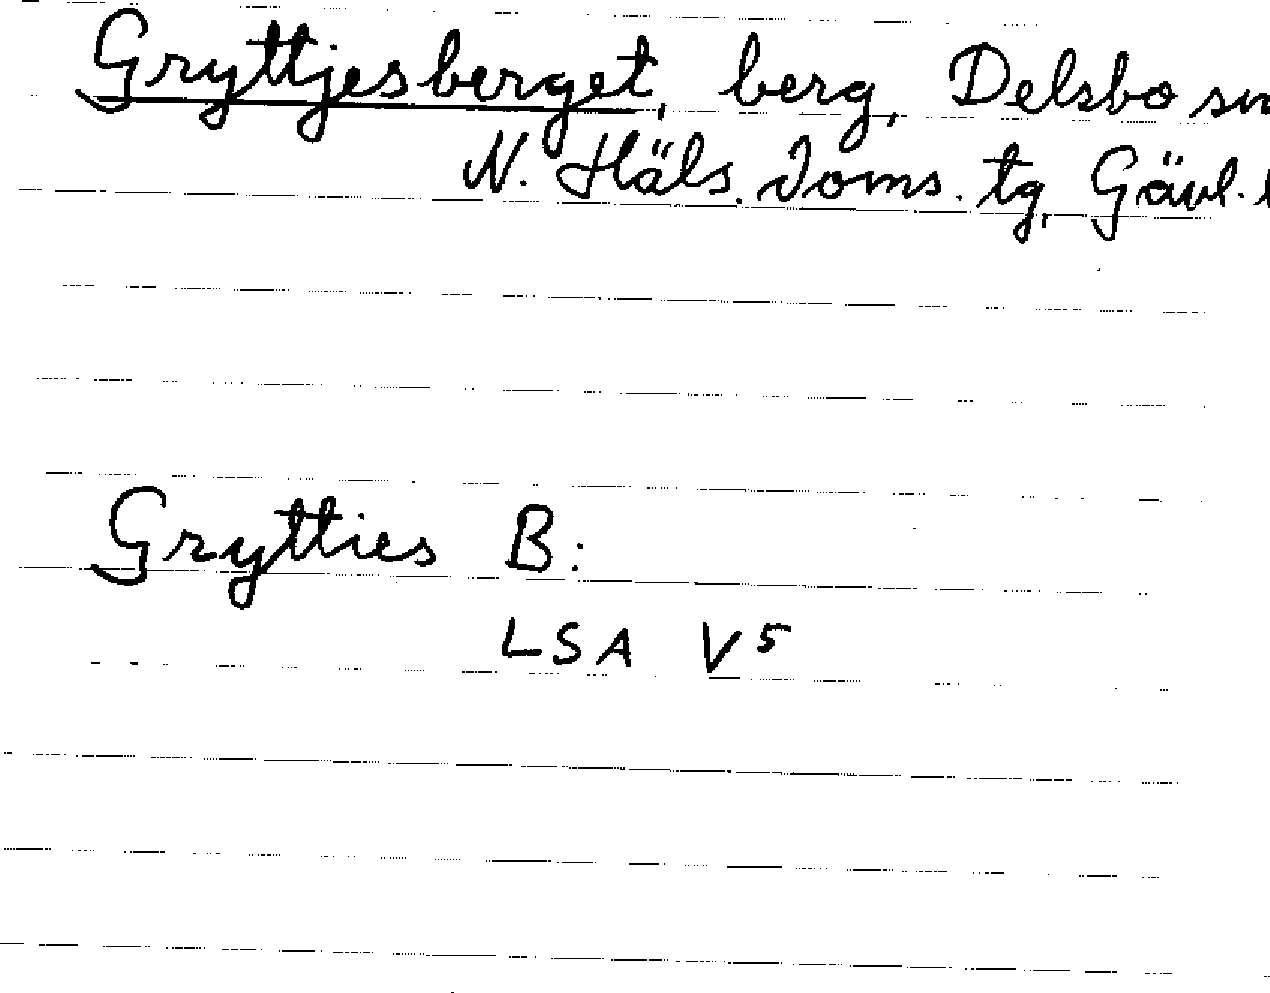 Gryttjesberget, berg, Delsbo sn
N. Häls. Doms. tg, Gävl. l
Grytties B:
LSA V5